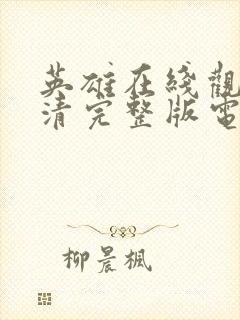 英雄在綫觀
清完整版電
柳晨楓